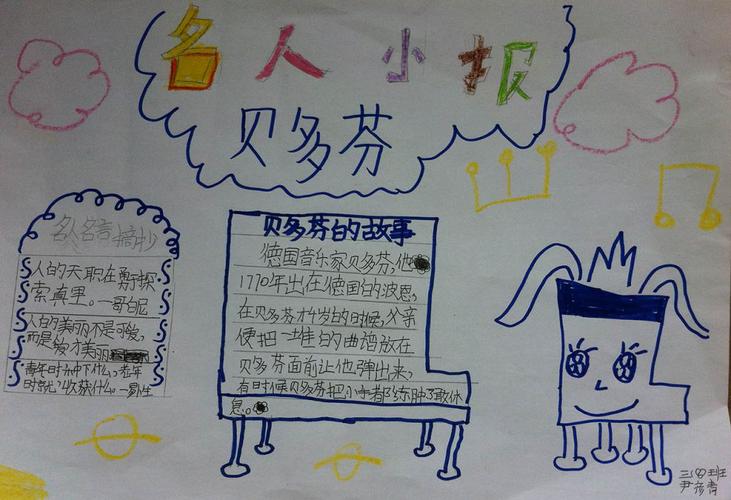 名人小报
贝多芬
名人名言摘抄
人的天职在勇探
索真里。一哥白尼
人白的美丽不是可爱,
而是爱才美丽
青年时种下什么,老年
时就收获什么。一易卜生
贝多芬的故事
德国音乐家贝多芬,他
1770年出在德国的波恩,
在贝多芬才4岁的时候,父亲
便把一堆的曲谱放在
贝多芬面前让他弹出来,
有时候贝多芬把小手都练肿了敢休
息。
三班
尹彦青